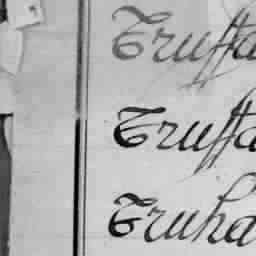 Truffa
Truffa
Truha